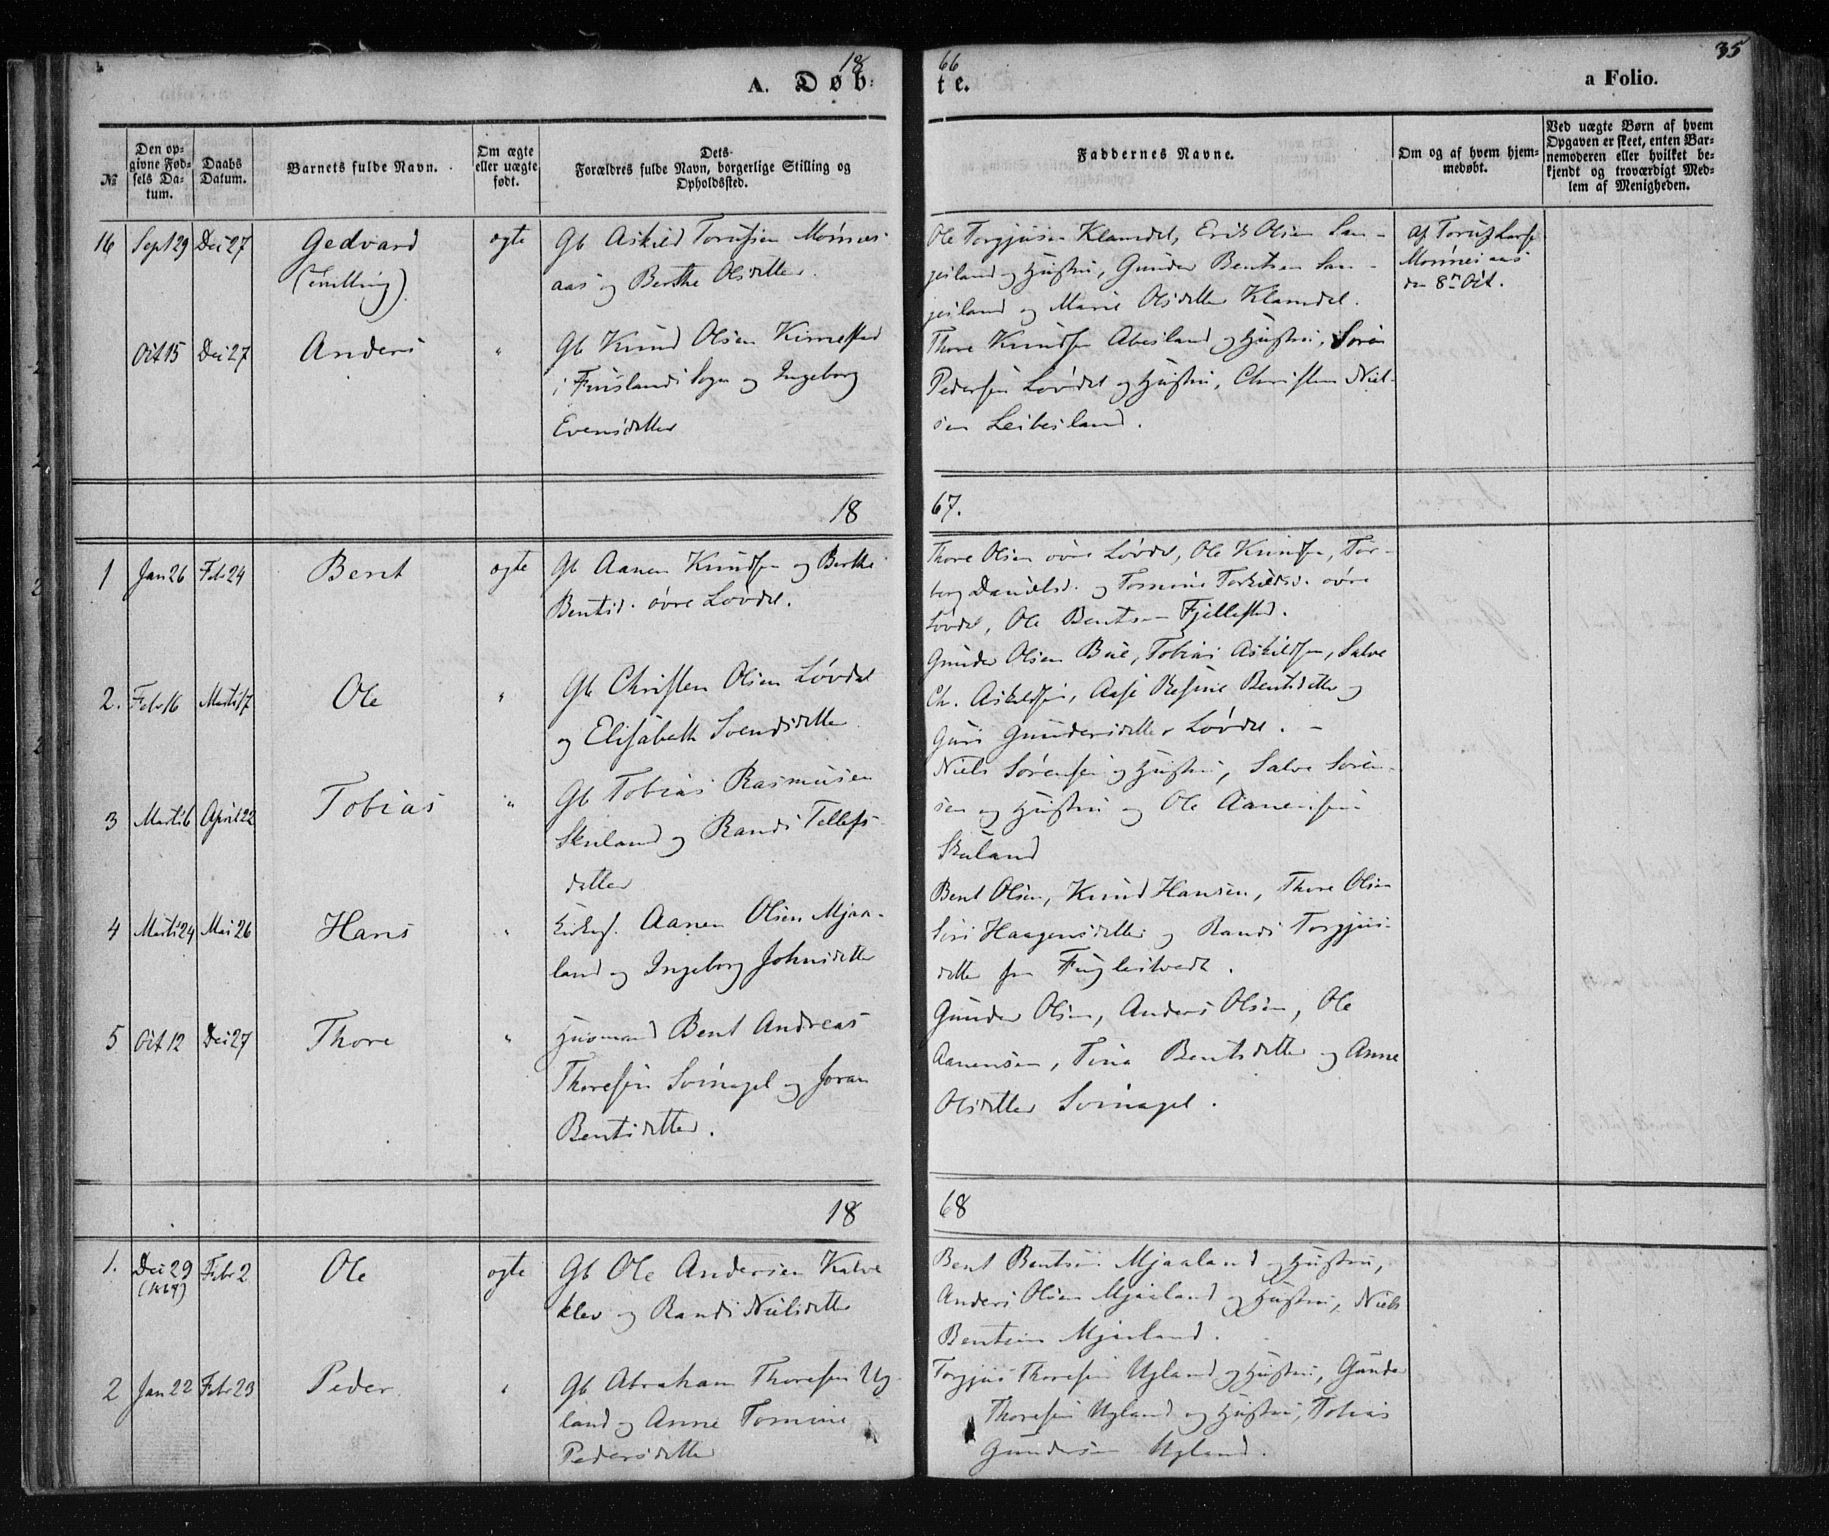 18 66
35
A. Døb: te.
a Folio.
№
Den op-
givne Fød-
sels Da-
tum.
Daabs
Datum.
Barnets fulde Navn.
Om ægte
eller uægte
født.
Dets
Forældres fulde Navn, borgerlige Stilling og
Opholdssted.
Faddernes Navne.
Om og af hvem hjem-
medøbt.
Ved uægte Børn af hvem
Opgaven er skeet, enten Bar-
nemoderen eller hvilket be-
kjendt og troværdigt Med-
lem af Menigheden.
16 Sept 29 Dec 27 Gedvard
(tvilling)
ægte
Gb Askild
aas og Berthe Olsdatter.
Ole Torgjusen Klamdal, Erik Olsen
og Hustru, Gunder Bentsen
og Marie Olsdatter Klamdal.
den 8de Oct.
Oct 15 Dec 27 Anders "
Gb Knud Olsen
i Finslands Sogn og Ingeborg
Evensdatter
Thore Knudsen Abesland og Hustru, Søren
Pedersen Løvdal og Hustru, Christen Niel-
sen Leibesland.
18 67.
1 Jan 26 Feb 24 Bent ægte
Gb Aanen Knudsen og Berthe
Bentsd. øvre Løvdal.
Thore Olsen øvre Løvdal, Ole Knudsen, Tor-
borg Danielsd. og Tomine Torkildsd. øvre
Løvdal, Ole Bentsen Fjellestad.
2. Feb 16 Marts 17 Ole "
Gb Christen Olsen Løvdal
og Elisabeth Svendsdatter
Gunder Olsen Bue, Tobias Askildsen, Salve
Ch. Askildsen, Aase Rosine Bentsdatter og
Guri Gundersdatter Løvdal. -
3 Marts 6 April 22 Tobias "
Gb Tobias Rasmusen
Skuland og Randi Tellefs-
datter
Niels Sørensen og Hustru, Salve Søren-
sen og Hustru og Ole Aanensen
Skuland
4 Marts 24 Mai 26 Hans "
Aanen Olsen Mjaa-
land og Ingeborg Johnsdatter
Bent Olsen, Knud Hansen, Thore Olsen
Siri Haagensdatter og Randi Torgjus-
datter fra Fuglestvedt.
5 Oct 12 Dec 27 Thore "
Husmand Bent Andreas
Thoresen Svinagel og Joran
Bentsdatter.
Gunder Olsen, Anders Olsen, Ole
Aanensen, Tina Bentsdatter og Anne
Olsdatter Svinagel.
18 68
1. Dec 29 Febr 2 Ole ægte
Gb Ole Andersen Kalve
klev og Randi Nielsdatter
Bent Bentsen Mjaaland og Hustru,
Anders Olsen Mjaaland og Hustru, Niels
Bentsen Mjaaland.
2 Jan 22 Febr 23 Peder "
Gb Abraham Thoresen Ug-
land og Anne Tomine
Pedersdatter
Torgjus Thoresen Ugland og Hustru, Gunder
Thoresen Ugland og Hustru, Tobias
Gundersen Ugland.